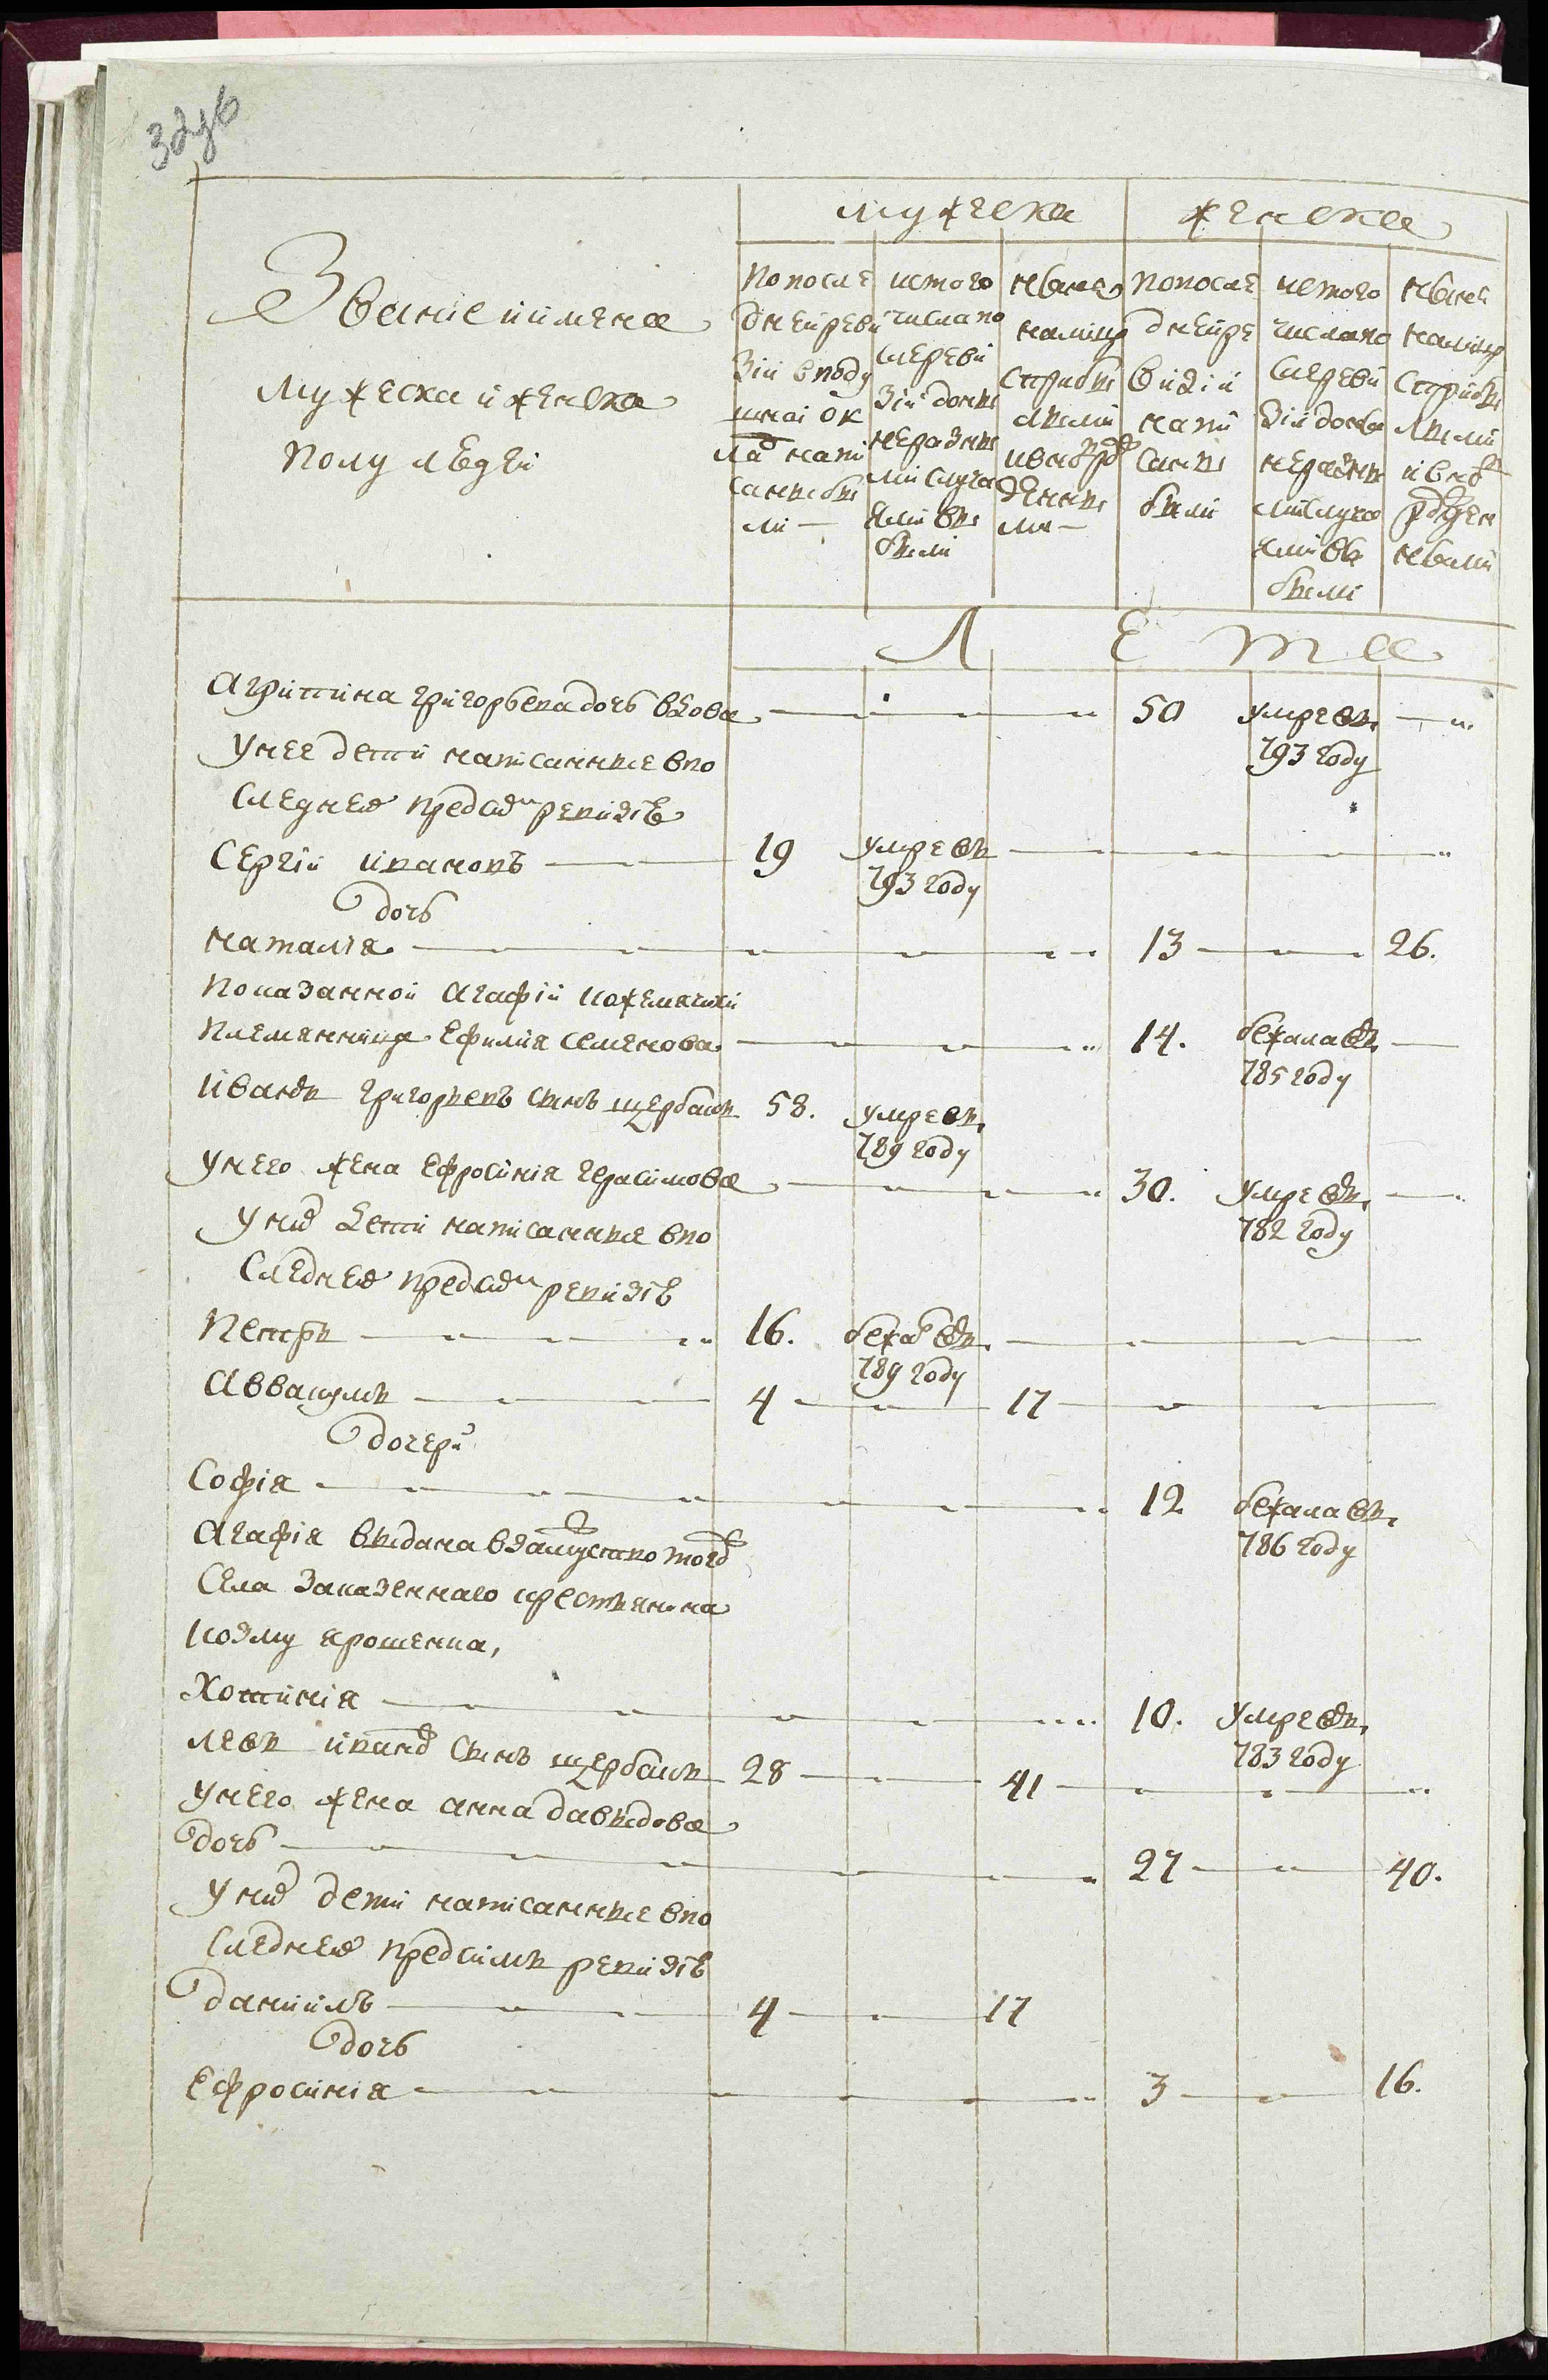 мужеска женска
Звание и имена
мужеска и женска
полу людей
по после
дней реви
зии в поду
шной ок
лад напи
саны бы
ли —
ис того
числа по
сле реви
зии доны
не разны
ми случа
ями вы
были
ныне
налицо
с прибы
лыми
ими —
по после
дней ре
визии
напи
саны
были
ис того
числа по
сле реви
зии доны
не разны
ми случа
ями вы
были
ныне
налицо
с прибы
лыми
Лета
Агрипина григорьева дочь вдова 50 умре въ
793 году
у нее дети написанные в по
следней пред сим ревизіе
Сергій ивановъ 19 умре въ
793 году
дочь
наталія 13 26.
показанной агафіи
племянница Ефимія семенова 14. бежала въ
785 году
Иванъ григорьевъ сынъ щербакъ 58. умре въ
789 году
у него жена ефросинія герасимова 30. умре въ
782 году
у них дети написанные в по
следней пред сим ревизіе
Петръ 16. бежал въ
789 году
Аввакумъ 4 17
дочери
Софія 12 бежала въ
786 году
Агафія выдана в замужество того
села заказенного крестьянина
козму ярошенка,
Хотинія 10. умре въ
783 году
левъ иванов сынъ щербакъ 28 41
у него жена анна давыдова
дочь 27 40.
у них дети написанные в по
следней пред симъ ревизіе
даниилъ 4 17
дочь
Ефросинія 3 16.